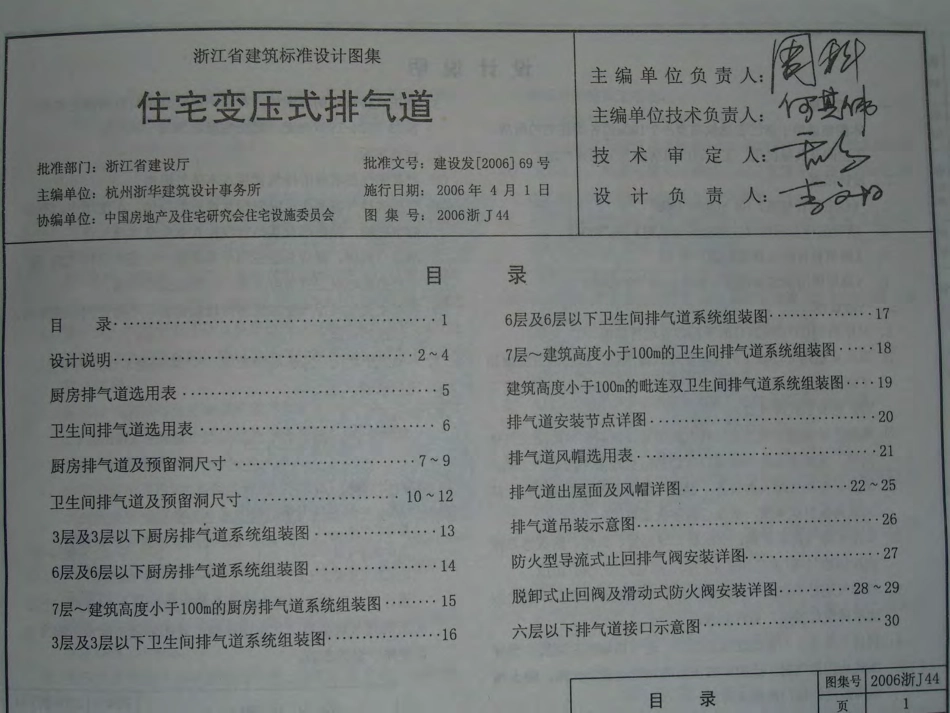 浙江省建筑标准设计图集
住宅变压式排气道
批准部门：浙江省建设厅
主编单位：杭州浙华建筑设计事务所
协编单位：中国房地产及住宅研究会住宅设施委员会
批准文号：建设发[2006]69号
施行日期：2006年4月1日
图集号：2006浙J44
主编单位负责人：
主编单位技术负责人：何其伟
技术审定人：
设计负责人：
目 录
目 录 1
设计说明 2~4
厨房排气道选用表 5
卫生间排气道选用表 6
厨房排气道及预留洞尺寸 7~9
卫生间排气道及预留洞尺寸 10~12
3层及3层以下厨房排气道系统组装图 13
6层及6层以下厨房排气道系统组装图 14
7层~建筑高度小于100m的厨房排气道系统组装图 15
3层及3层以下卫生间排气道系统组装图 16
6层及6层以下卫生间排气道系统组装图 17
7层~建筑高度小于100m的卫生间排气道系统组装图 18
建筑高度小于100m的毗连双卫生间排气道系统组装图 19
排气道安装节点详图 20
排气道风帽选用表 21
排气道出屋面及风帽详图 22~25
排气道吊装示意图 26
防火型导流式止回排气阀安装详图 27
脱卸式止回阀及滑动式防火阀安装详图 28~29
六层以下排气道接口示意图 30
目 录
图集号 2006浙J44
页 1